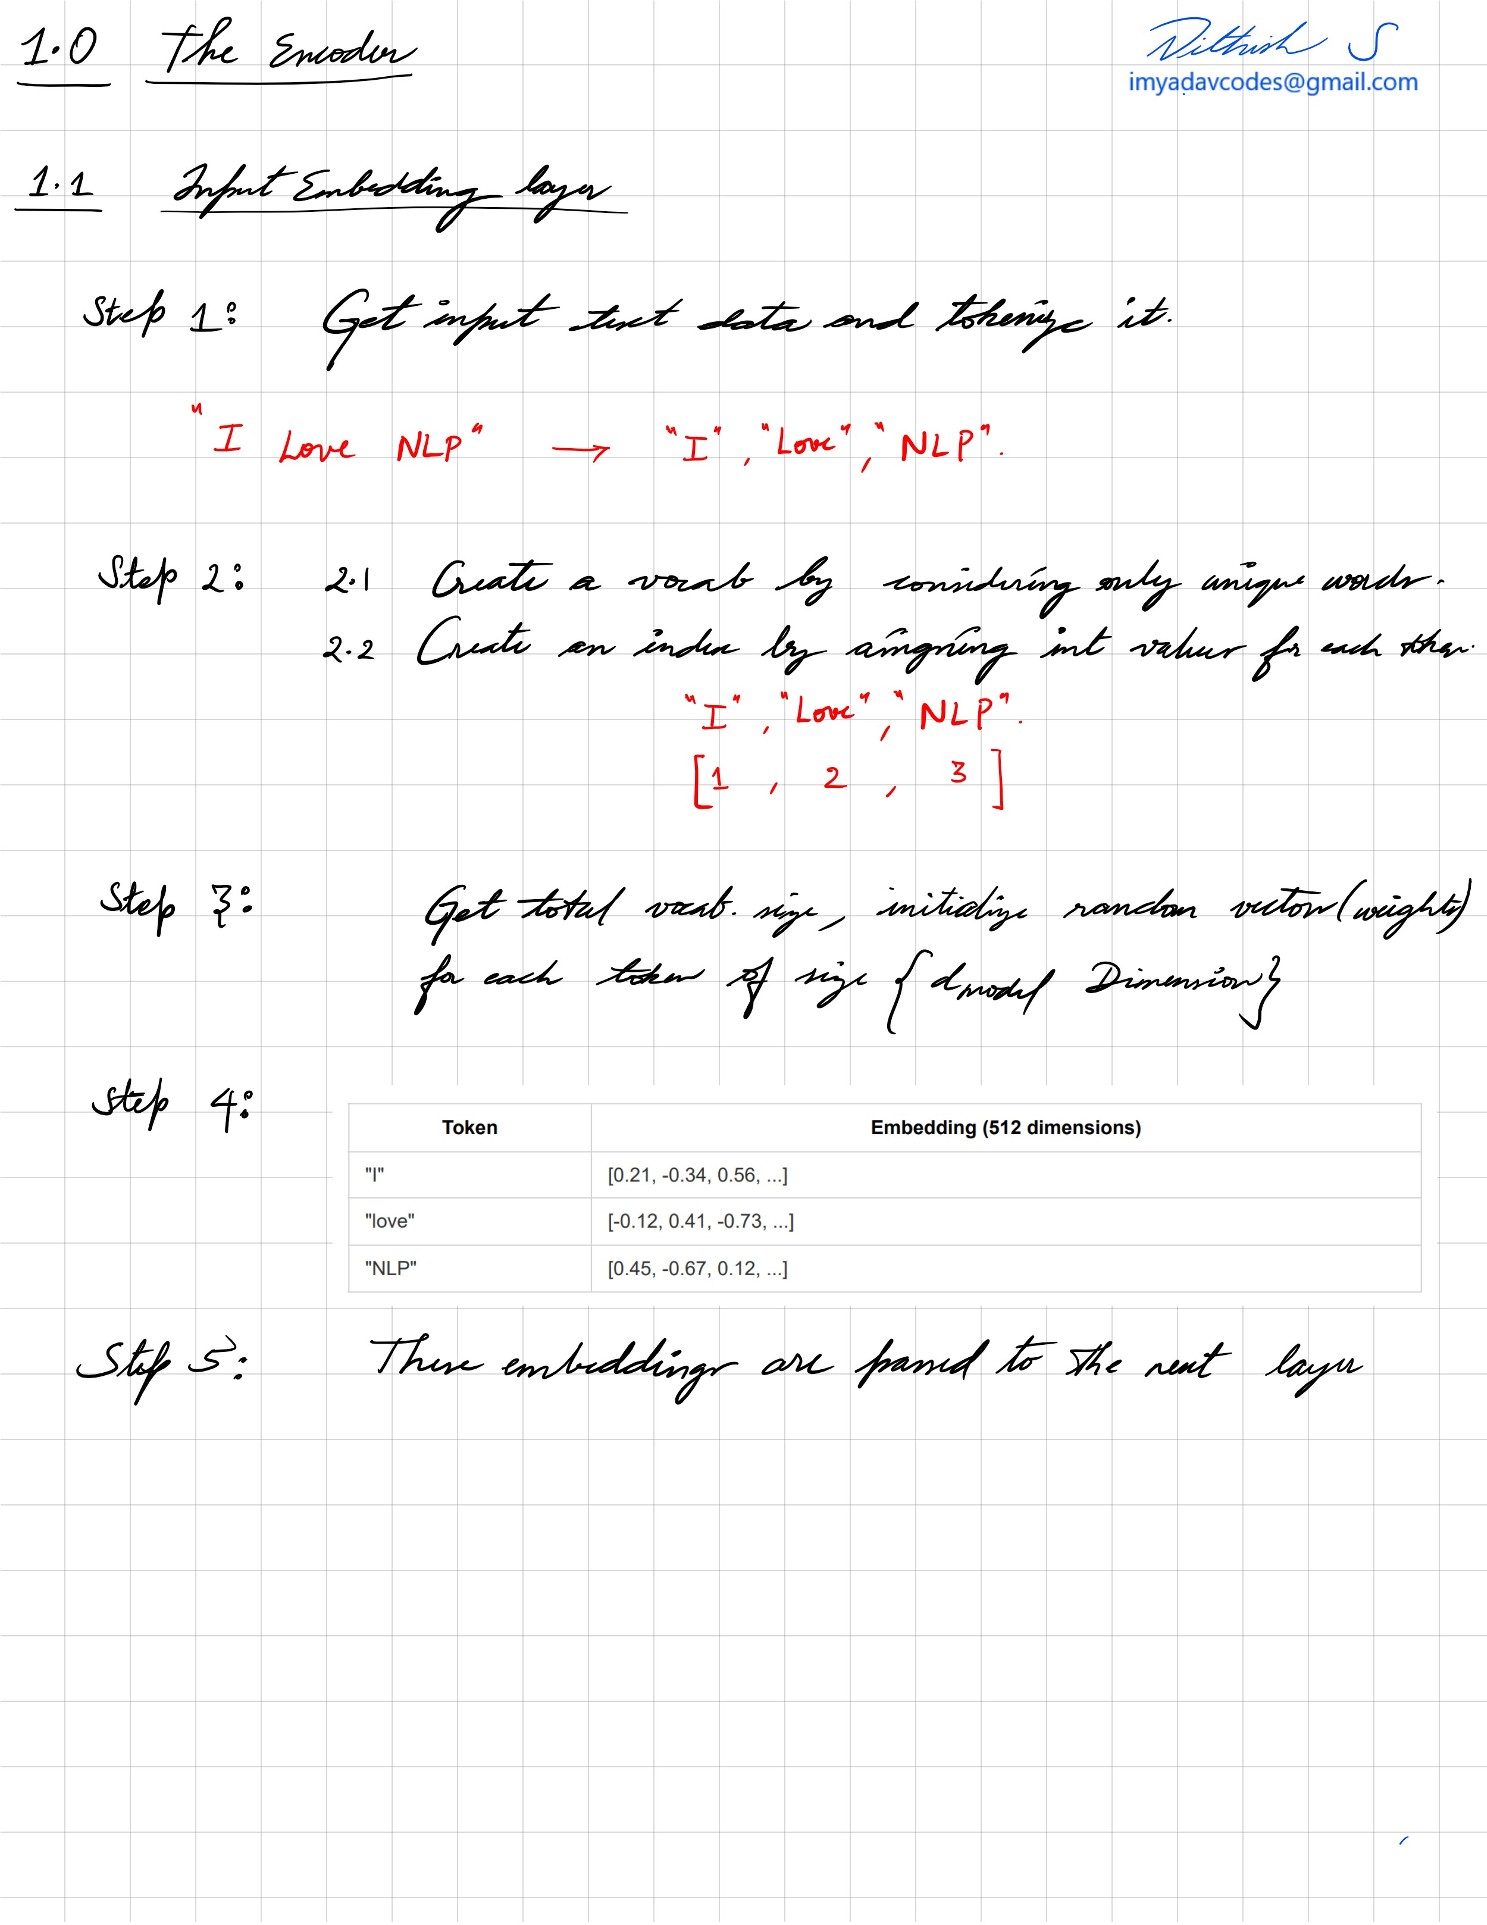 1.0 The Encoder
Dithish S
imyadavcodes@gmail.com
1.1 Input Embedding layer
Step 1: Get input text data and tokenize it.
"I Love NLP" → "I", "Love", "NLP".
Step 2: 2.1 Create a vocab by considering only unique words.
2.2 Create an index by assigning int values for each
"I", "Love", "NLP".
[1 , 2 , 3]
Step 3: Get total vocab. size, initialize random vectors (weights)
for each token of size {dmodel Dimension}
Step 4:
Token Embedding (512 dimensions)
"I" [0.21, -0.34, 0.56, ...]
"love" [-0.12, 0.41, -0.73, ...]
"NLP" [0.45, -0.67, 0.12, ...]
Step 5: These embeddings are passed to the next layer